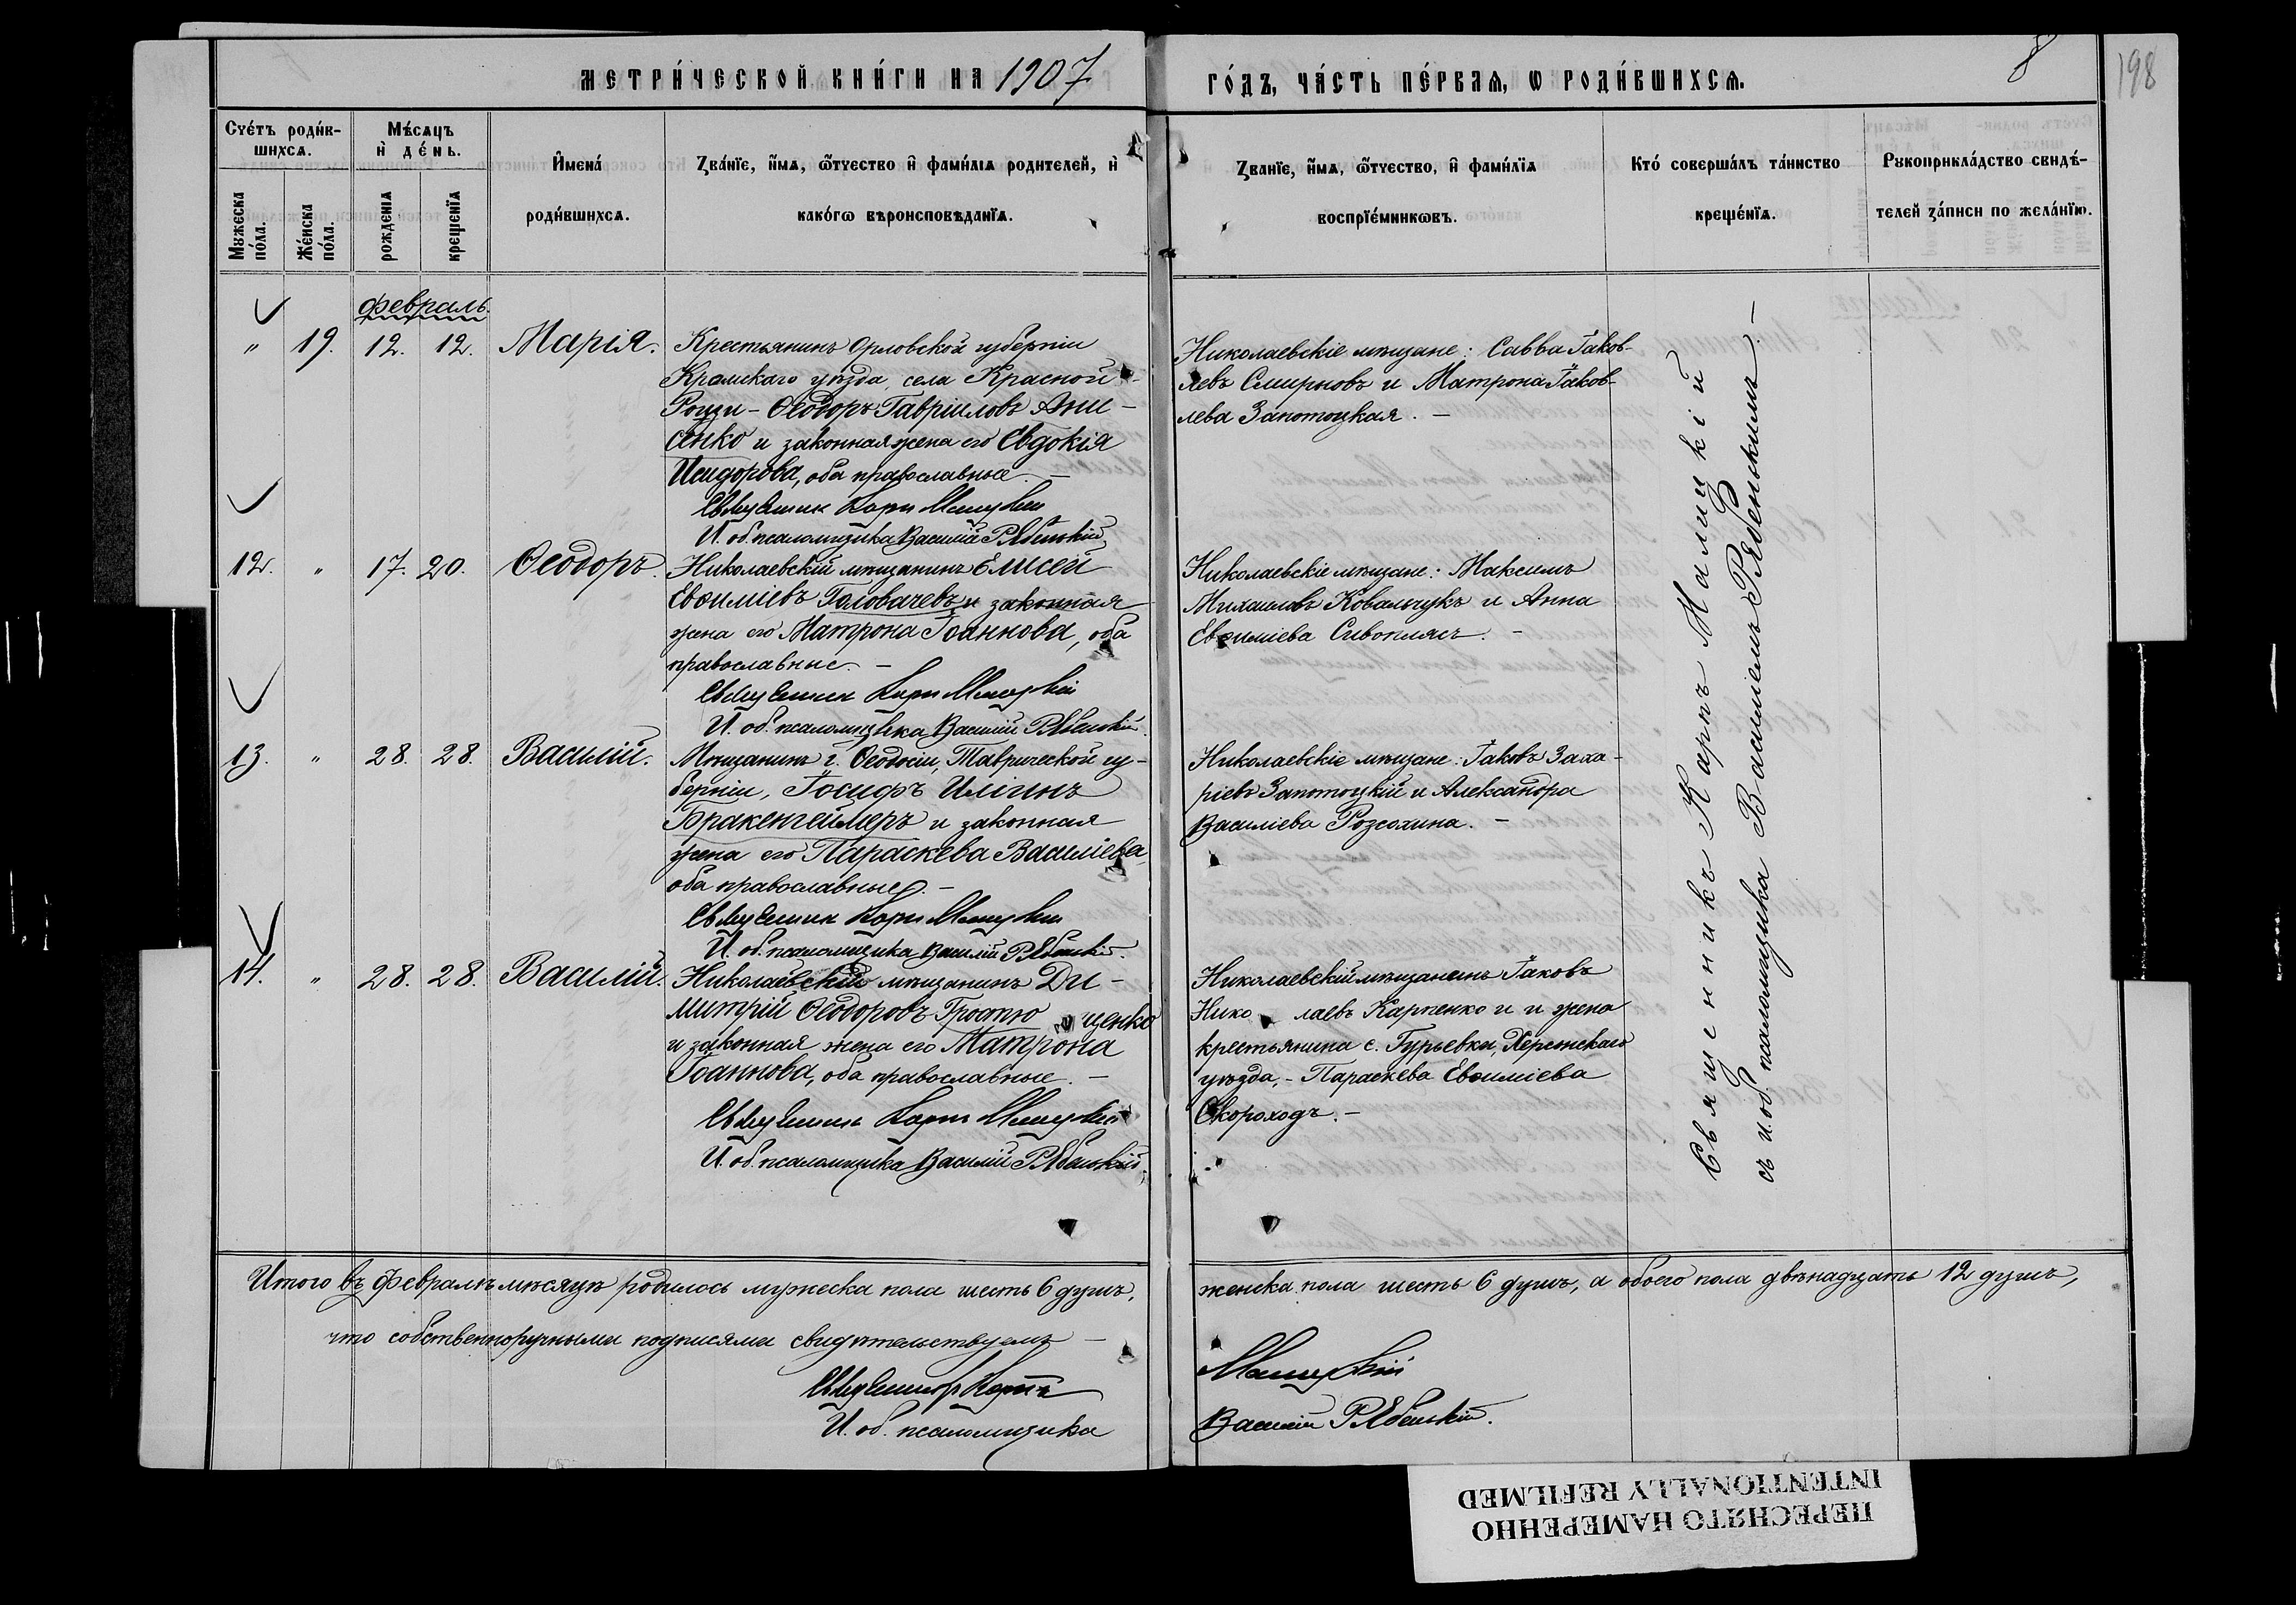 МЕТРИ́ЧЕСКОЙ КНИ́ГИ НА 1907
ГО́ДЪ, ЧА́СТЬ ПЕ́РВАЯ, Ѡ РОДИ́ВШИХСЯ.
8
198
Счéтъ роди́в-
шихся.
Мѣ́сяцъ
и҆ де́нь.
Мꙋжеска по́ла.
Же́нска по́ла.
рожденїѧ
крещенїѧ
И҆мена́
роди́вшихся.
Зва́нїе, и҆́мѧ, ѻ҆́тчество и҆ фами́лїѧ родителей, и҆
како́гѡ вѣроисповѣданїѧ.
Зва́нїе, и҆́мѧ, ѻ҆́тчество, и҆ фами́лїѧ
воспрїе́мникѡвъ.
Кто́ соверша́лъ та́инство
креще́нїѧ.
Рꙋкоприкла́дство свидѣ́-
телей за́писи по жела́нїю.
февраль.
" 19. 12. 12. Марія.
Крестьянинъ Орловской губерніи
Крамскаго уѣзда, села Красной
Рощи - Ѳеодоръ Гавріиловъ Ани-
сенко и законная жена его Евдокія
Исидорова, оба православные. —
Священникъ Карпъ Малицкій
И. об. псаломщика Василій Рябенькій
Николаевскіе мѣщане: Савва Іаков-
левъ Смирновъ и Матрона Іаков-
лева Запотоцкая. —
12. " 17. 20. Ѳеодоръ.
Николаевскій мѣщанинъ Елисей
Евѳиміевъ Головачевъ и законная
жена его Матрона Іоаннова, оба
православные. —
Священникъ Карпъ Малицкій
И. об. псаломщика Василій Рябенькій.
Николаевскіе мѣщане: Максимъ
Михаиловъ Ковальчукъ и Анна
Евѳиміева Сивопляс​ъ. -
13. " 28. 28. Василій.
Мѣщанинъ г. Ѳеодосіи, Таврической гу-
берніи, Іосифъ Иліинъ
Бракенгеймеръ и законная
жена его Параскева Василіева,
оба православные. —
Священникъ Карпъ Малицкій
И. об. псаломщика Василій Рябенькій.
Николаевскіе мѣщане: Іаковъ Заха-
ріевъ Запотоцкій и Александра
Василіева Розсохина. -
14. " 28. 28. Василій.
Николаевскій мѣщанинъ Ди-
митрій Ѳеодоровъ Тростю ценко
и законная жена его Матрона
Іоаннова, оба православные. —
Священникъ Карпъ Малицкій
И. об. псаломщика Василій Рябенькій.
Николаевскій мѣщанинъ Іаковъ
Нико лаевъ Карпенко и и жена
крестьянина с. Гурьевки, Херсонскаго
уѣзда, - Параскева Евѳиміева
Скороходъ. —
Священникъ Карпъ Малицкій
съ и. об. псаломщика Василіемъ Рябенькимъ. —
Итого въ Февралѣ мѣсяцѣ родилось мужеска пола шесть 6 душъ,
женска пола шесть 6 душъ, а обоего пола двѣнадцать 12 душъ,
что собственноручными подписями свидѣтельствуемъ —
Священникъ Карпъ
Малицкій
И. об. псаломщика
Василій Рябенькій.
ПЕРЕСНЯТО НАМЕРЕННО
INTENTIONALLY REFILMED